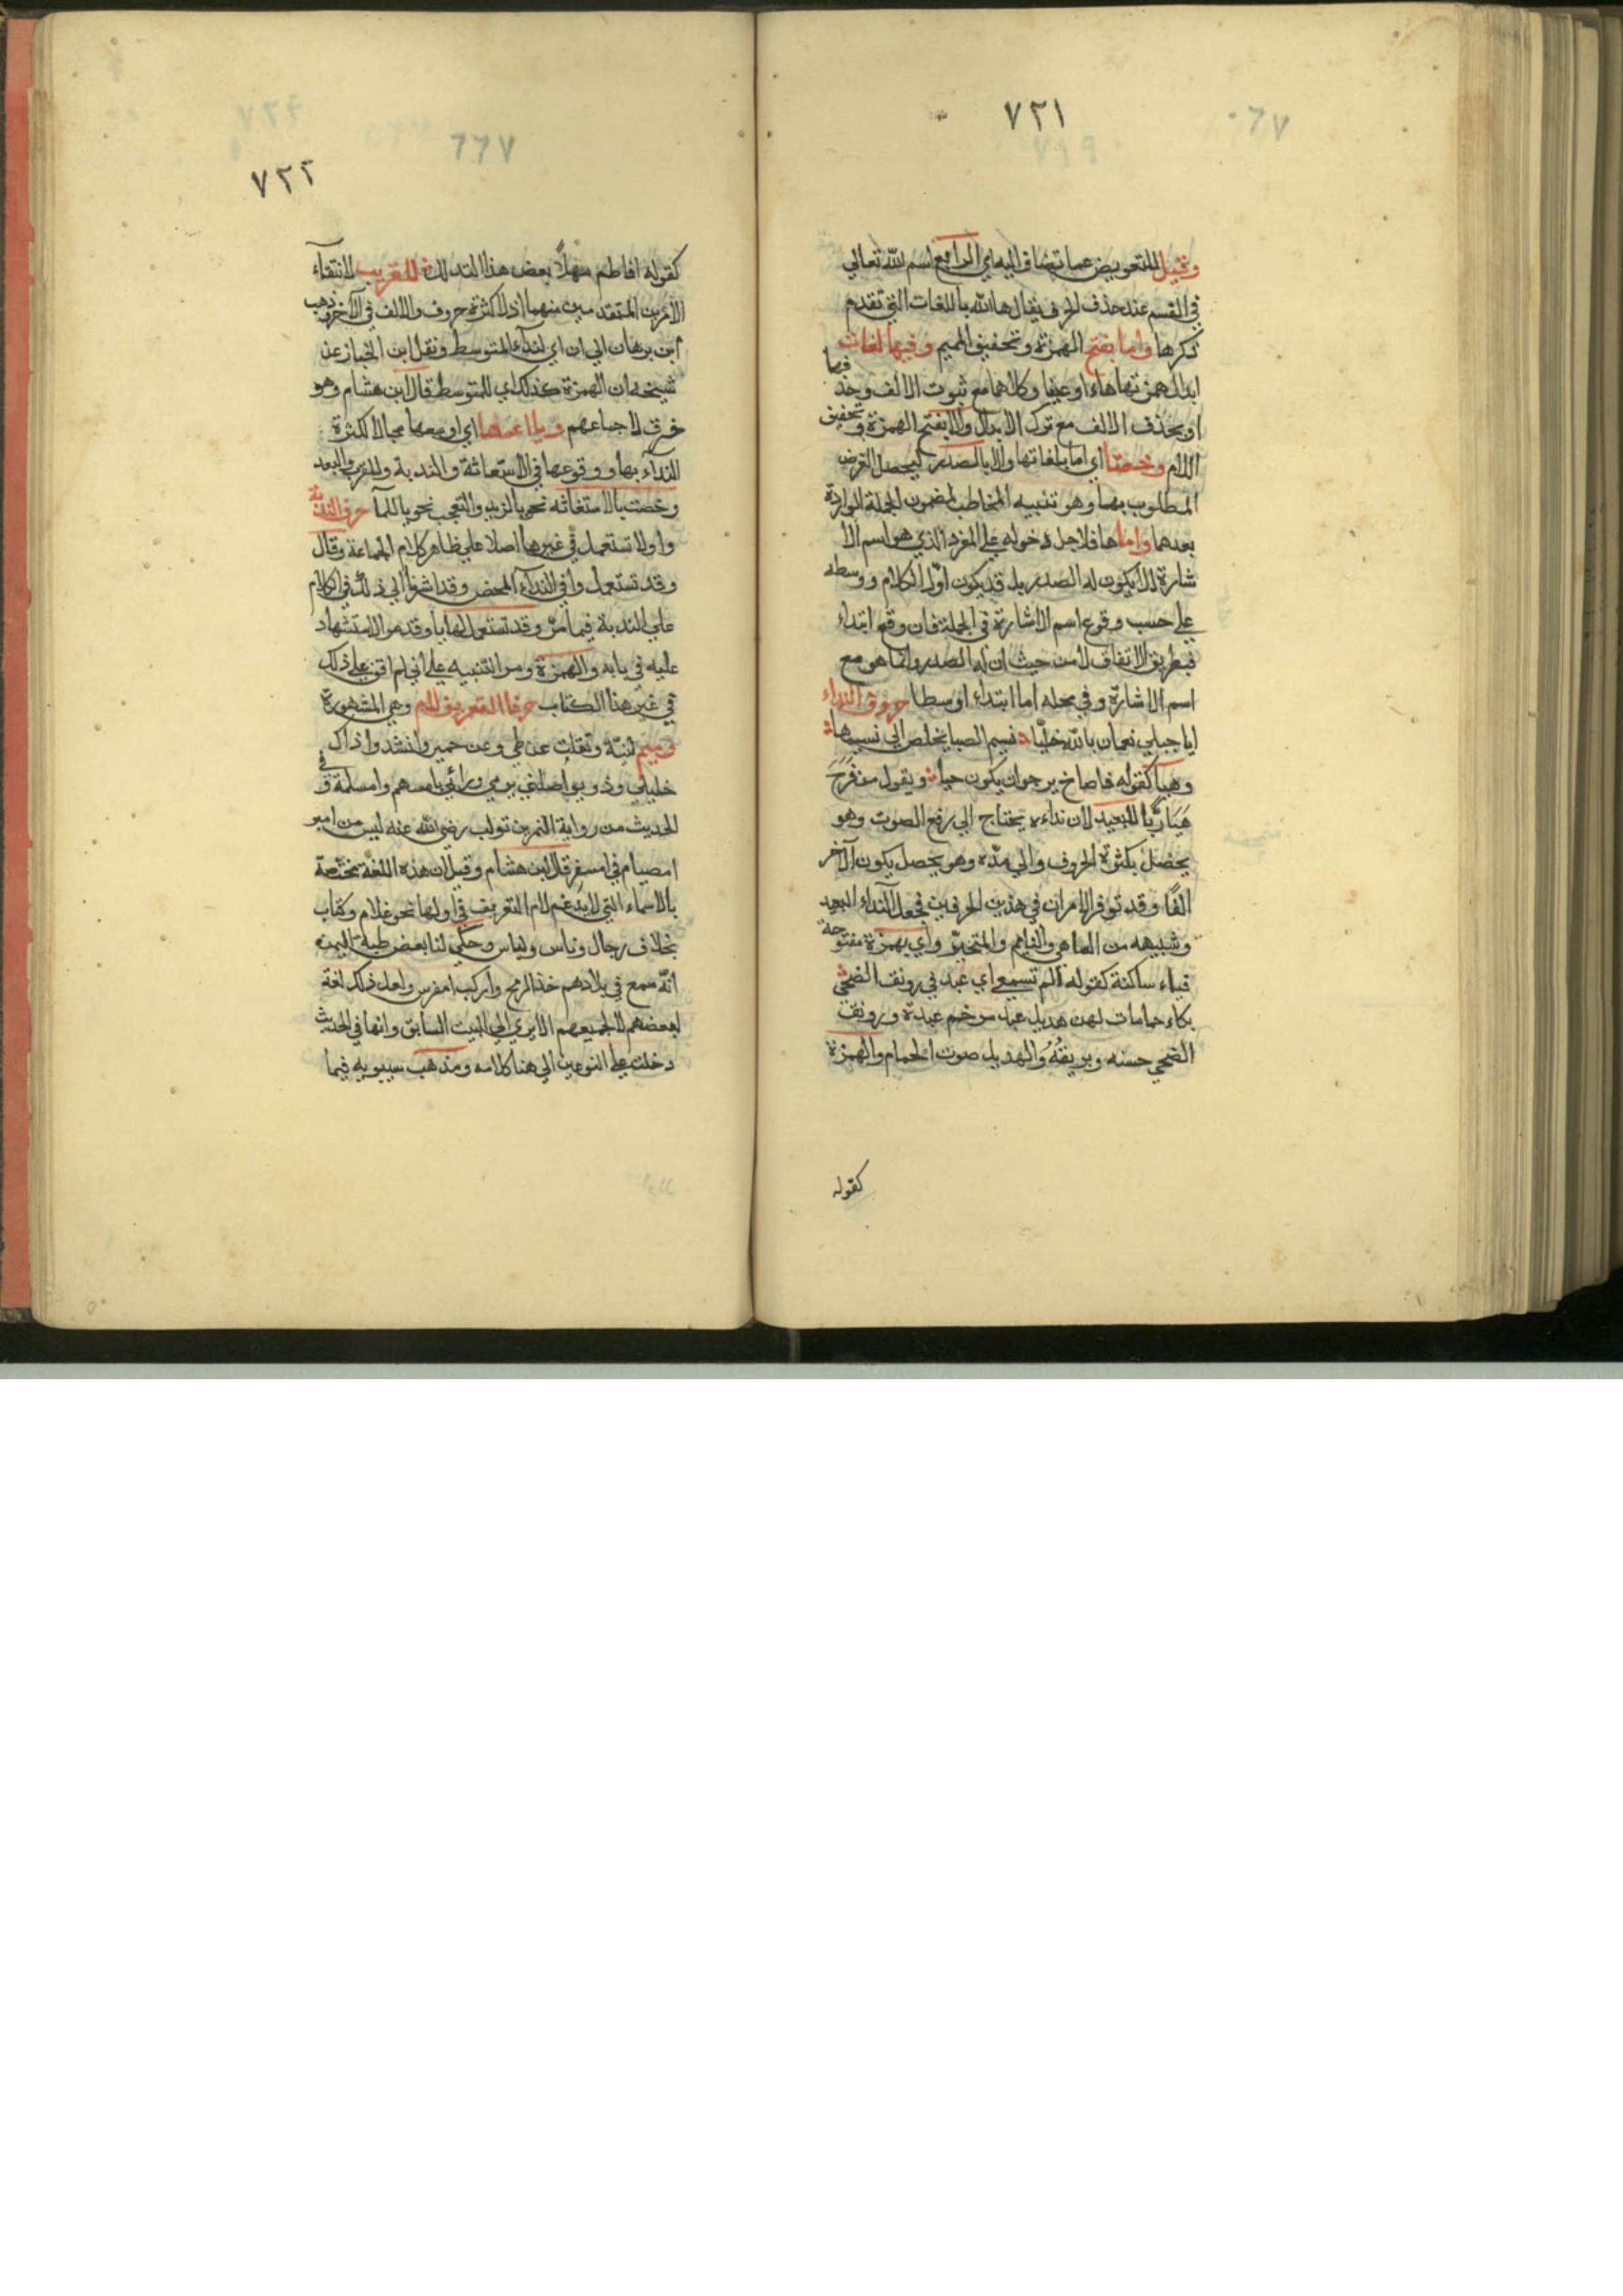 ٧٢١
وقيل للتعويض عما تضاف اليه اي الرابع اسم الله تعالي
في القسم عند حذف الحرف يقال ها الله باللغات التي تقدم
ذكرها واما بفتح الهمزة وتخفيف الميم وفيها لغات
ابدال همزتها هاء او عينا وكلاهما مع ثبوت الالف وحذفها
او بحذف الالف مع ترك الابدال والا بفتح الهمزة وتخفيف
اللام وخصتا اي اما بلغاتها والا بالصدر ليحصل الغرض
المطلوب بهما وهو تنبيه المخاطب لمضمون الجملة الواردة
بعدهما واما ها فلاجل دخوله علي المفرد الذي هو اسم الا
شارة لا يكون له الصدر بل قد يكون اول الكلام ووسطه
علي حسب وقوع اسم الاشارة في الجملة فان وقع ابتداء
فبطريق الاتفاق لا من حيث ان له الصدر وانما هو مع
اسم الاشارة وفي محله اما ابتداء او وسطا حروف النداء
ايا جبلي نعمان بالله خليا نسيم الصبا يخلص الي نسيمها
وهيا كقوله فاصاخ يرجو ان يكون حيا ويقول من فرح
هيا ربا للبعيد لان نداءه يحتاج الي رفع الصوت وهو
يحصل بكثرة الحروف والي مده وهو يحصل بكون الآخر
الفا وقد توفر الامران في هذين الحرفين فجعلا لنداء البعيد
وشبيهه من الساهي والنايم والمتحير واي بهمزة مفتوحة
فياء ساكنة كقوله الم تسمعي اي عبد في رونق الضحي
بكاء حمامات لهن هديل عبد مرخم عبدة ورونق
الضحي حسنه وبريقه والهديل صوت الحمام والهمزة
كقوله
٧٢٢
٧٦٦
كقوله افاطم مهلا بعض هذا التدلل للقريب لانتفاء
الامرين المتقدمين منهما اذ لا كثرة حروف والالف في الآخر وذهب
ابن برهان الي ان اي لنداء المتوسط ونقل ابن الخباز عن
شيخه ان الهمزة كذلك اي للمتوسط قال ابن هشام وهو
خرق لاجماعهم ويا اعمها اي اوسعها مجالا لكثرة
النداء بها ووقوعها في الاستغاثة والندبة والقرب والبعد
وخصت بالاستغاثه نحو يا لزيد والتعجب نحو يا للمآ حرف الندبة
وا ولا تستعمل في غيرها اصلا علي ظاهر كلام الجماعة وقال
وقد تستعمل وا في النداء المحض وقد اشرنا الي ذلك في الكلام
علي الندبة فيما مر وقد تستعمل لها يا وقد مر الاستشهاد
عليه في بابه والهمزة ومر التنبيه علي اني لم اقف علي ذلك
في غير هذا الكتاب حرفا التعريف لام وهي المشهورة
وميم لنية ونقلت عن طي وعن حمير وانشدوا ذاك
خليلي وذو يواصلني يرمي ورائي بامسهم وامسلمة وفي
الحديث من رواية النمر بن تولب رضي الله عنه ليس من امبر
امصيام في امسفر قال ابن هشام وقيل ان هذه اللغة مختصة
بالاسماء التي لا يدغم لام التعريف في اولها نحو غلام وكتاب
بخلاف رجال وناس ولباس وحكي لنا بعض طلبة اليمن
انه سمع في بلادهم خذ الرمح واركب امفرس ولعل ذلك لغة
لبعضهم لا لجميعهم الا تري الي البيت السابق وانها في الحديث
دخلت علي النوعين الي هنا كلامه ومذهب سيبويه فيما